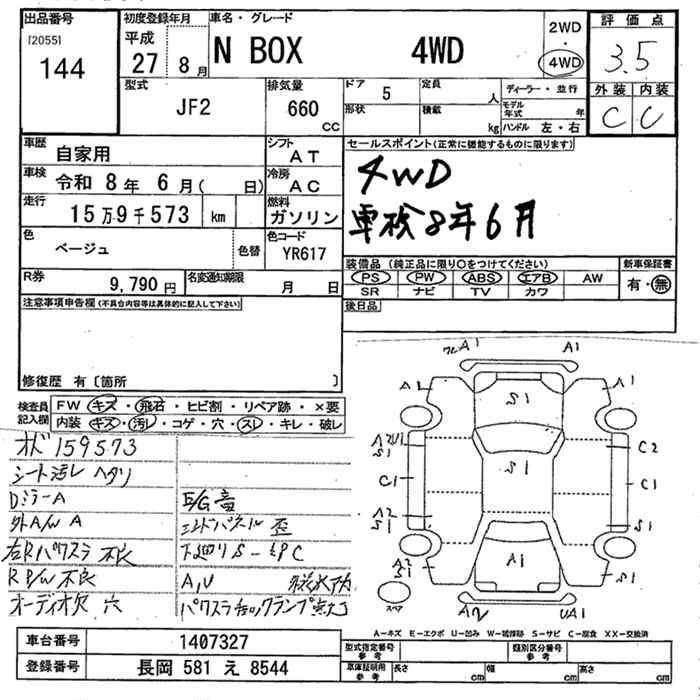 出品番号
[2055]
144
初度登録年月
平成
27 8 月
車名・グレード
N BOX 4WD
2WD
・
4WD
評価点
3.5
型式
JF2
排気量
660
CC
ドア
5
定員
人
形状
積載
kg
ディーラー・並行
モデル年式
年
ハンドル 左・右
外装 内装
C C
車歴
自家用
シフト
AT
車検
令和 8年 6月( 日)
冷房
AC
走行
15万9千573 km
燃料
ガソリン
色
ベージュ
色替
色コード
YR617
R券
9,790 円
名変通知期限
月 日
セールスポイント(正常に機能するものに限ります)
4WD
車検8年6月
装備品 (純正品に限り〇をつけてください)
新車保証書
PS PW ABS エアB AW
有・無
SR ナビ TV カワ
後日品
注意事項申告欄(不具合内容等は具体的に記入して下さい)
修復歴 有〔箇所 〕
検査員記入欄
FW キズ・飛石・ヒビ割・リペア跡・×要
内装 キズ・汚レ・コゲ・穴・スレ・キレ・破レ
オド159573
シート汚レ ヘタリ
DミラーA
外A/W A
E/G音
右Rパワスラ 不良
下廻りS
R P/W 不良
A,V
オーディオ欠 穴
A1
A1
S1
A1
A1
S1
C2
S1
C1
C1
S1
S1
A1
A2
S1
S1
スペア
UA1
A－キズ E－エクボ U－凹み W－補修跡 S－サビ C－腐食 XX－交換済
車台番号
1407327
登録番号
長岡 581 え 8544
型式指定番号
参考
類別区分番号
参考
車庫証明用
参考
長さ cm
幅 cm
高さ cm